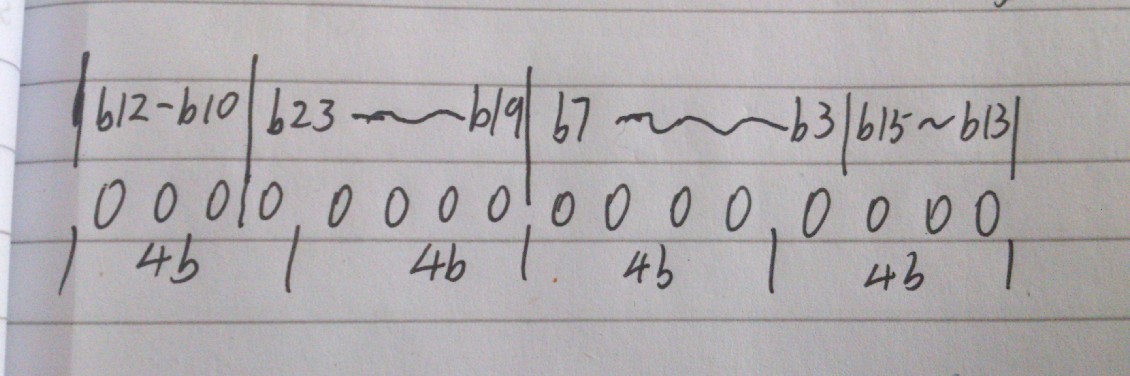 |b12-b10|b23~b19|b7~b3|b15~b13|
000|00000|00000000
|4b|4b|4b|4b|